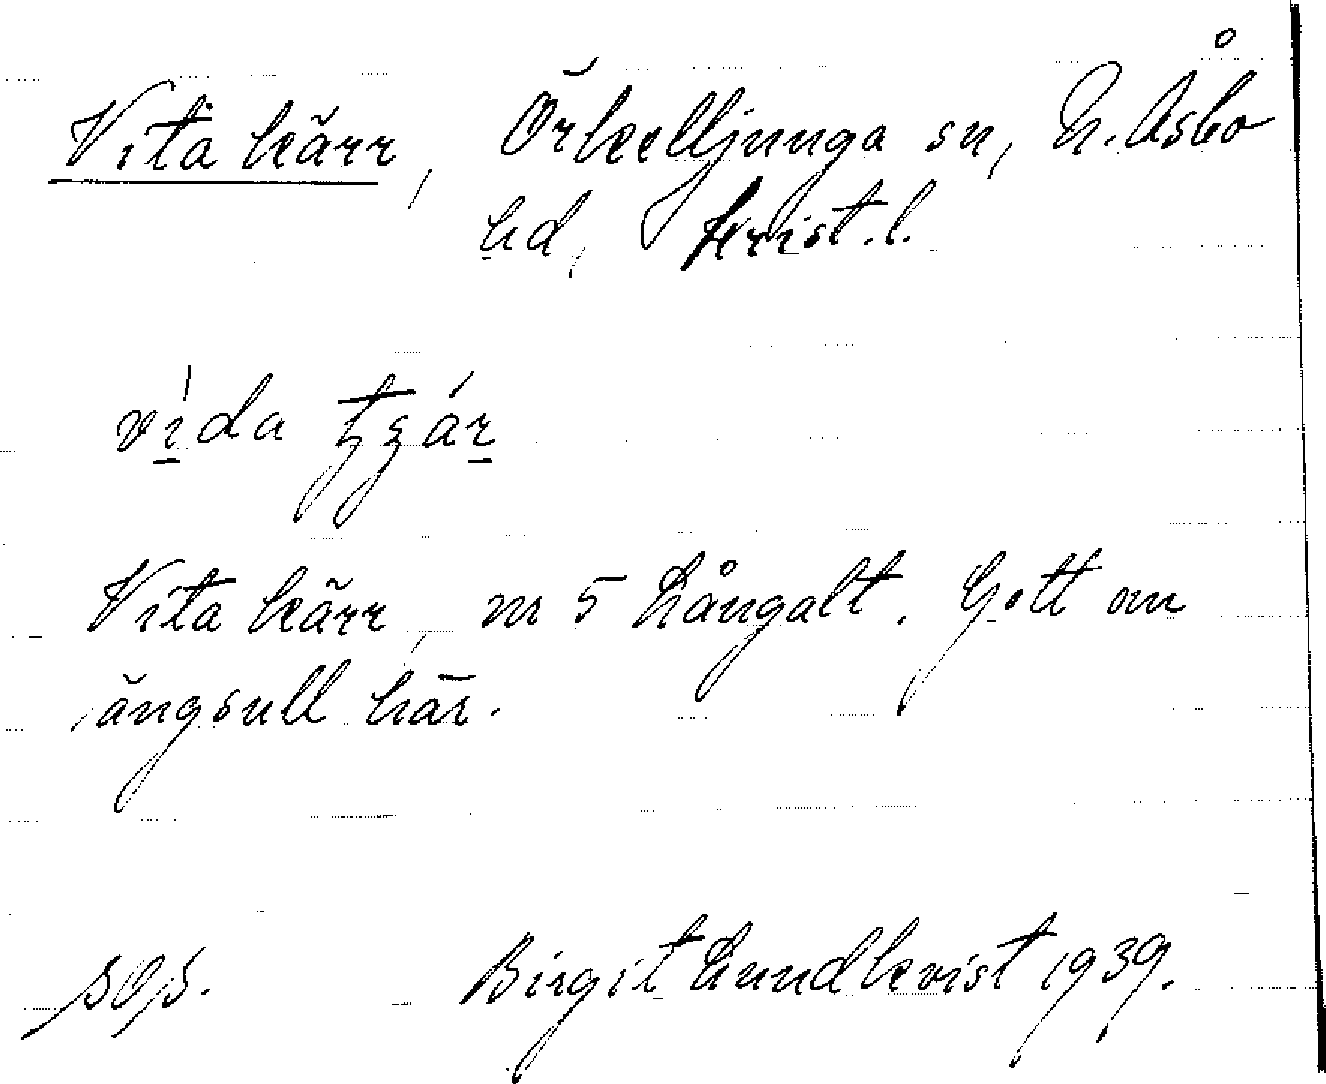 Vita kärr, Örkelljunga sn, N. Åsbo
hd, Krist. l.
vìda tʒár
Vita kärr, nr 5 Långalt. Gott om
ängsull här.
Birgit Lundkvist 1939.